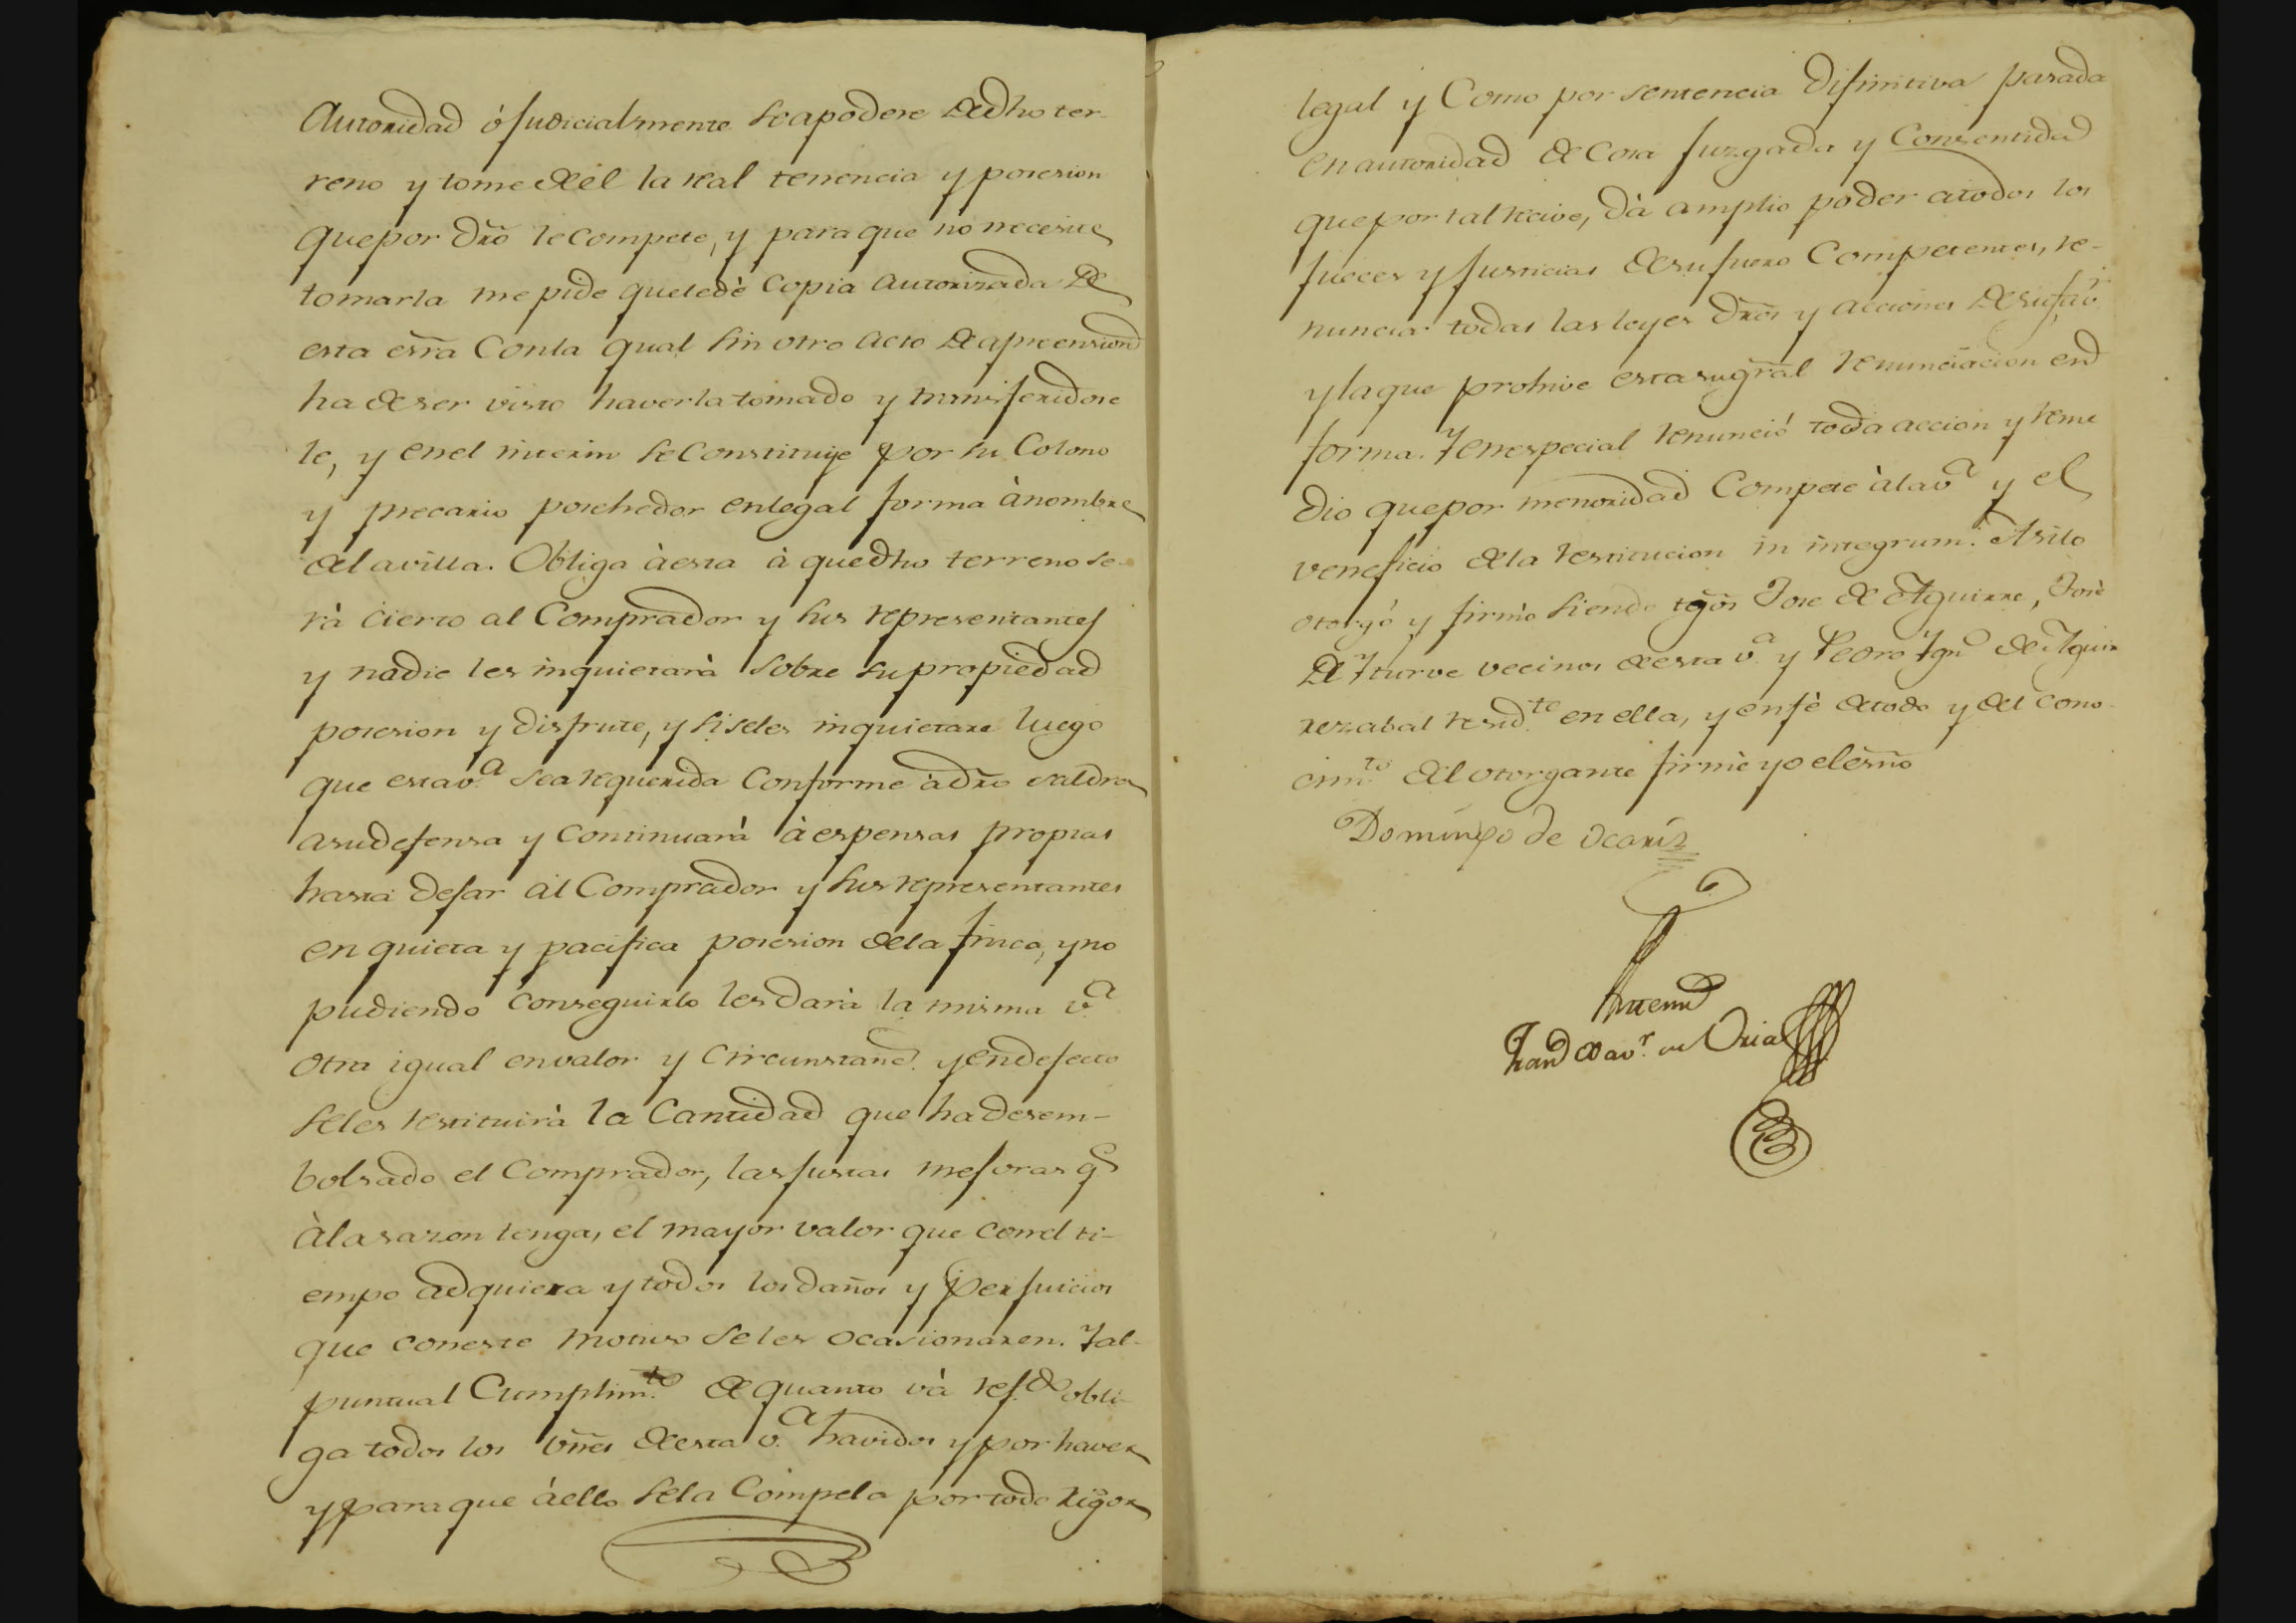 Autoridad ó judicialmente se apodere de dho ter-
reno y tome de él la real tenencia y posesion
que por dro̅ le compete, y para que no necesite
tomarla me pide que le dè copia autorizada de
esta esrã con la qual sin otro acto de apreension
ha de ser visto haverla tomado y transferidose
le, y en el interin se constituye por su Colono
y precario posehedor en legal forma à nombre
de la villa. Obliga à esta à que dho terreno se-
rà cierto al Comprador y sus representantes
y nadie les inquietarà sobre su propiedad
posesion y disfrute, y si se les inquietare luego
que esta v.ª sea requerida conforme à dro̅ saldrà
a su defensa y continuarà à espensas propias
hasta dejar al Comprador y sus representantes
en quieta y pacifica posesion de la finca, y no
pudiendo conseguirlo les darà la misma v.ª
otra igual en valor y circunstanc.s y en defecto
se les restituirà la Cantidad que ha desem-
bolsado el Comprador, las justas mejoras q.e
à la sazon tenga, el mayor valor que con el ti-
empo adquiera y todos los daños y perjuicios
que con este motivo se les ocasionaren. Y al
puntual Cumplim.to de quanto và ref.do obli-
ga todos los vñes de esta v.ª havidos y por haver
y para que à ello se la compela por todo rigor
legal y como por sentencia difinitiva pasada
en autoridad de cosa juzgada y consentida
que por tal recive, dà amplio poder a todos los
jueces y justicias de su fuero competentes, re-
nuncia todas las leyes dros̅ y acciones de su fav.r
y la que prohive esta su grãl renunciacion en
forma. Y en especial renunció toda accion y reme
dio que por menoridad compete à la v.ª y el
veneficio de la restitucion in integrum. Asi lo
otorgó y firmó siendo tg̃os Jose de Aguirre, José
de Yturve vecinos de esta v.ª y Pedro Ygn.o de Aguir
rezabal resid.te en ella, y en fè de todo y del cono-
cim.to del otorgante firmè yo el esño
Domingo de Ocariz
Antemi
Fran.co Xav.r de Oria